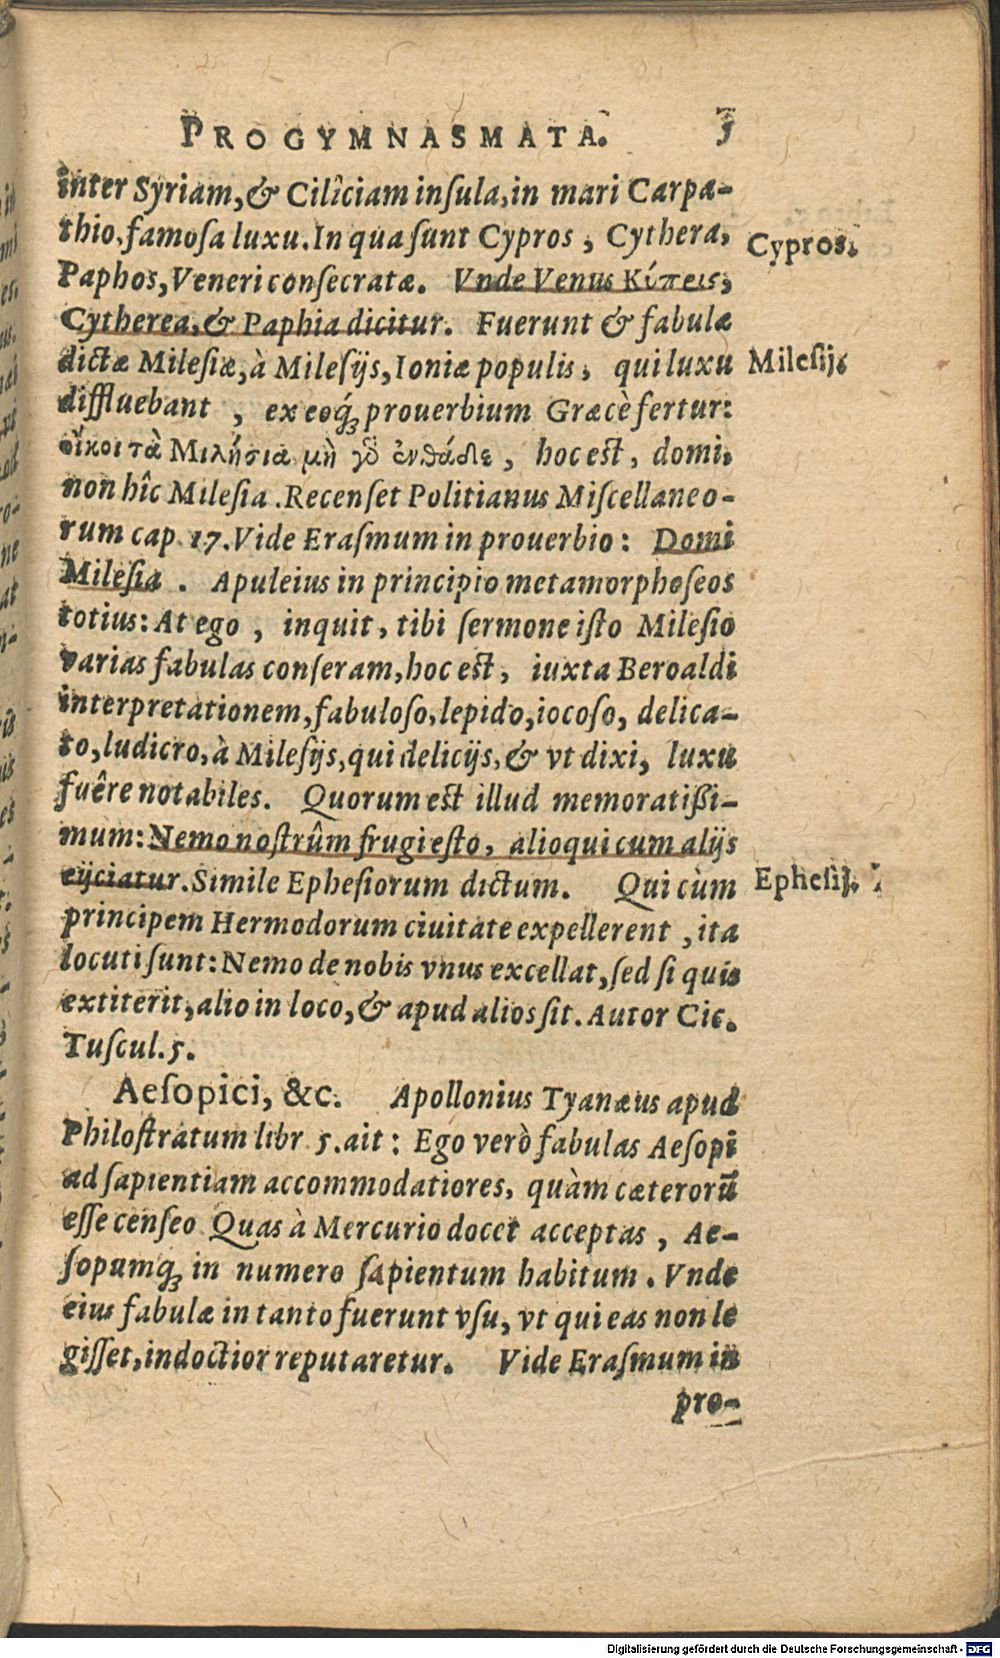 PROGYMNASMATA. 5
inter Syriam, & Ciliciam insula, in mari Carpa-
thio, famosa luxu. In qua sunt Cypros, Cythera,
Cypros.
Paphos, Veneri consecratæ. Vnde Venus Κύπρις,
Cytherea, & Paphia dicitur. Fuerunt & fabulæ
dictæ Milesiæ, à Milesijs, Ioniæ populis, qui luxu
Milesij.
diffluebant, ex eoq́ꝫ prouerbium Græcè fertur:
οἴκοι τὰ Μιλήσια μὴ γὸ ἐνθάδε, hoc est, domi,
non hîc Milesia. Recenset Politianus Miscellaneo-
rum cap 17. Vide Erasmum in prouerbio: Domi
Milesia. Apuleius in principio metamorphoseos
totius: At ego, inquit, tibi sermone isto Milesio
varias fabulas conseram, hoc est, iuxta Beroaldi
interpretationem, fabuloso, lepido, iocoso, delica-
to, ludicro, à Milesijs, qui delicijs, & vt dixi, luxu
fuêre notabiles. Quorum est illud memoratißi-
mum: Nemo nostrûm frugi esto, alioqui cum alijs
eijciatur. Simile Ephesiorum dictum. Qui cùm
Ephesij.
principem Hermodorum ciuitate expellerent, ita
locuti sunt: Nemo de nobis vnus excellat, sed si quis
extiterit, alio in loco, & apud alios sit. Autor Cic.
Tuscul. 5.
Aesopici, &c. Apollonius Tyanæus apud
Philostratum libr 5. ait: Ego verò fabulas Aesopi
ad sapientiam accommodatiores, quàm cæterorū
esse censeo Quas à Mercurio docet acceptas, Ae-
sopumq́ꝫ in numero sapientum habitum. Vnde
eius fabulæ in tanto fuerunt vsu, vt qui eas non le
gisset, indoctior reputaretur. Vide Erasmum in
pro-
Digitalisierung gefördert durch die Deutsche Forschungsgemeinschaft - DFG